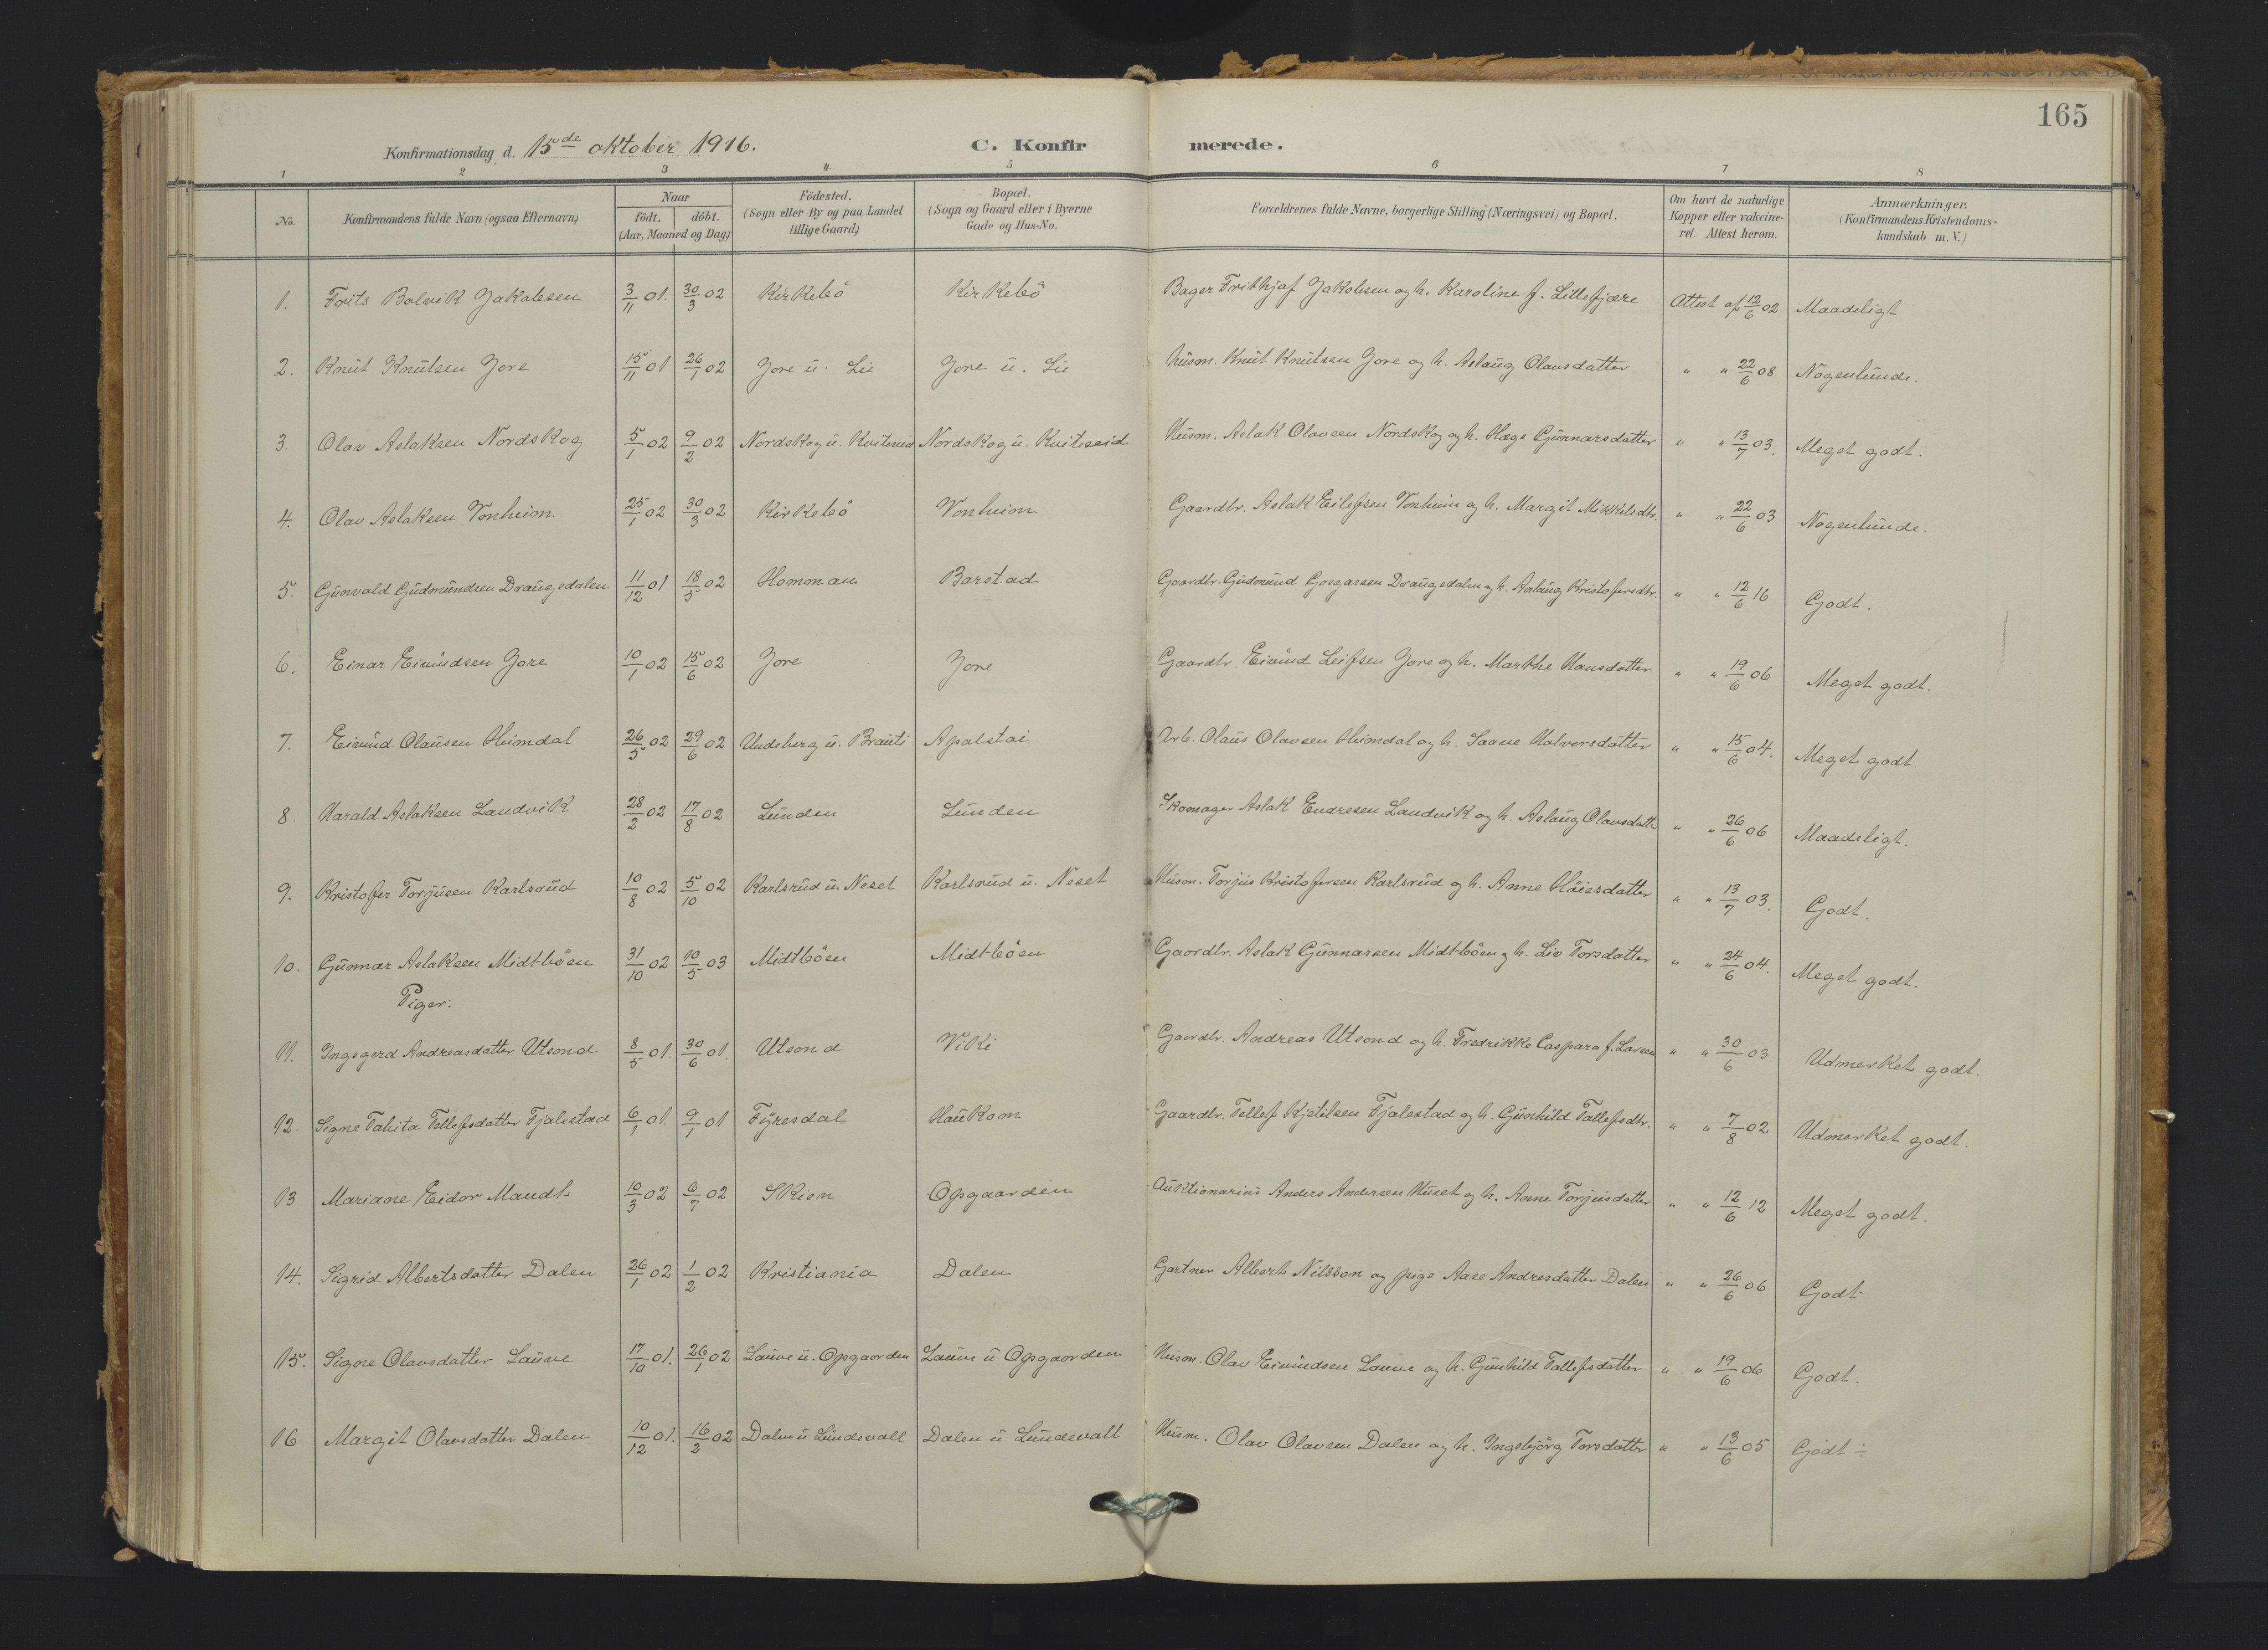 165
Konfirmationsdag d. 15de oktober 1916. C. Konfirmerede.
1 2 3 4 5 6 7 8
No. Konfirmandens fulde Navn (ogsaa Efternavn) Naar födt. döbt. (Aar, Maaned og Dag) Födested. (Sogn eller By og paa Landet tillige Gaard) Bopæl. (Sogn og Gaard eller i Byerne Gade og Hus-No. Forældrenes fulde Navne, borgerlige Stilling (Næringsvei) og Bopæl. Om havt de naturlige Kopper eller vakcineret. Attest herom. Anmærkninger. (Konfirmandens Kristendomskundskab m. V.)
1. Frits Bolvik Jakobsen 3/11 01. 30/3 02 Kirkebö Kirkebö Bager Frithjof Jakobsen og h. Karoline f. Lillefjære Attest af 12/6 02 Maadeligt
2. Knut Knutsen Jore 15/11 01 26/1 02 Jore u. Li Jore u. Li Husm. Knut Knutsen Jore og h. Aslaug Olavsdatter " " 22/6 08 Nogenlunde.
3. Olav Aslaksen Nordskog 5/1 02 9/2 02 Nordskog u. Kviteseid Nordskog u. Kviteseid Husm. Aslak Olavsen Nordskog og h. Hæge Gunnarsdatter " " 13/7 03. Meget godt.
4. Olav Aslaksen Vonheim 25/1 02 30/3 02 Kirkebö Vonheim Gaardbr. Aslak Eilefsen Vonheim og h. Margit Mikkilsdtr. " " 22/6 03 Nogenlunde.
5. Gunvald Gudmundsen Draugedalen 11/12 01 18/5 02 Hommau Barstad Gaardbr. Gudmund Gregarsen Draugedalen og h. Aslaug Kristofersdtr. " " 12/6 16 Godt.
6. Einar Eivindsen Jore 10/1 02 15/6 02 Jore Jore Gaardbr. Eivind Leifsen Jore og h. Marthe Hansdatter " " 19/6 06 Meget godt.
7. Eivind Olausen Heimdal 26/5 02 29/6 02 Undeberg u. Brauti Apalstai Arb. Olaus Olavsen Heimdal og h. Saave Halvorsdatter " " 15/6 04. Meget godt.
8. Harald Aslaksen Landvik 28/2 02 17/8 02 Lunden Lunden Skomager Aslak Endresen Landvik og h. Aslaug Olavsdatter " " 26/6 06 Maadeligt.
9. Kristofer Torjusen Karlsrud 10/8 02 5/10 02 Karlsrud u. Neset Karlsrud u. Neset Husm. Torjus Kristofersen Karlsrud og h. Anne Höiesdatter " " 13/7 03. Godt.
10. Gunnar Aslaksen Midtböen 31/10 02 10/5 03 Midtböen Midtböen Gaardbr. Aslak Gunnarsen Midtböen og h. Liv Torsdatter " " 24/6 04. Meget godt.
Piger.
11. Ingegerd Andreasdatter Utsond 8/5 01. 30/6 01. Utsond Viki Gaardbr. Andreas Utsond og h. Fredrikke Caspara f. Larsen " " 30/6 03. Udmerket godt.
12. Signe Tabita Tellefsdatter Fjalestad 6/1 01. 9/1 01 Fyresdal Haukom Gaardbr. Tellef Kjetilsen Fjalestad og h. Gunhild Tallefsdtr. " " 7/8 02 Udmerket godt.
13 Mariane Eidor Mandt 10/3 02 6/7 02 Skien Opgaarden Auktionarius Anders Andersen Huset og h. Anne Torjusdatter " " 12/6 12 Meget godt.
14. Sigrid Albertsdatter Dalen 26/1 02 1/2 02 Kristiania Dalen Gartner Albert Nilsson og pige Aase Andresdatter Dalen " " 26/6 06 Godt
15. Signe Olavsdatter Lauve 17/10 01. 26/1 02 Lauve u. Opgaarden Lauve u Opgaarden Husm. Olav Eivindsen Lauve og h. Gunhild Tallefsdatter " " 19/6 06 Godt.
16 Margit Olavsdatter Dalen 10/12 01. 16/2 02 Dalen u Lundevall Dalen u Lundevall Husm. Olav Olavsen Dalen og h. Ingebjörg Torsdatter " " 13/6 05 Godt ÷